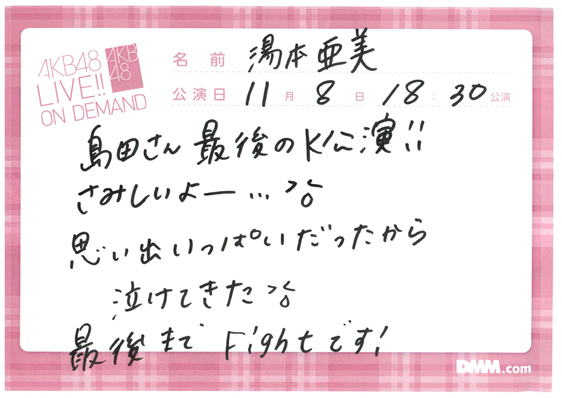 AKB48
LIVE!!
ON DEMAND
AKB
48
名前 湯本亜美
公演日 11月8日 18:30公演
島田さん最後のK公演!!
さみしいよー…
思い出いっぱいだったから
泣けてきた
最後までFightです!
DMM.com